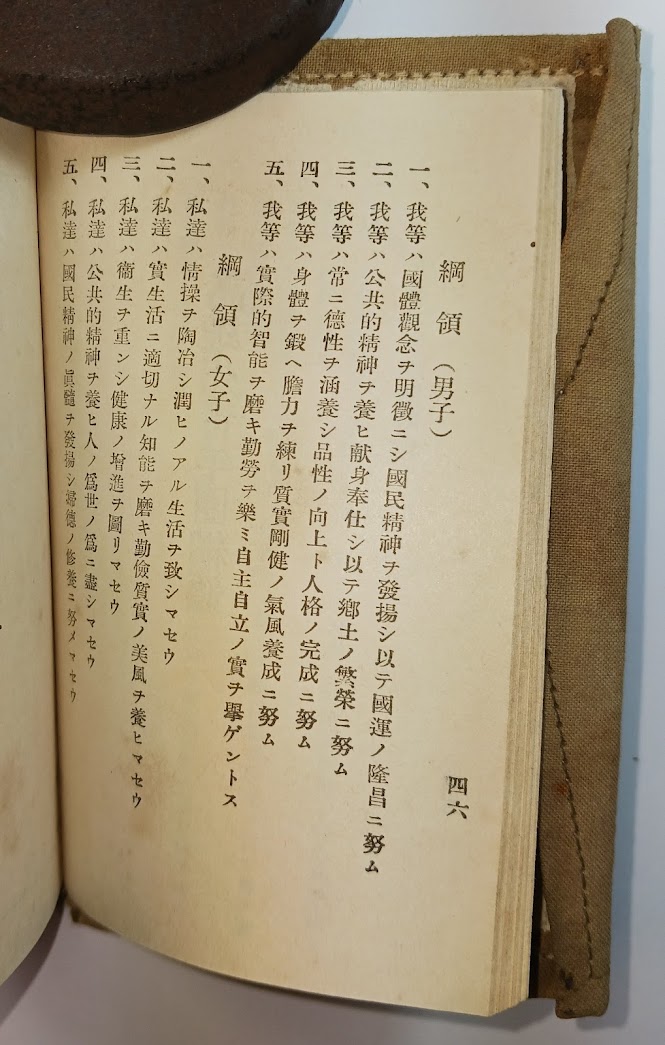 綱領（男子）
一、我等ハ國體觀念ヲ明徵ニシ國民精神ヲ發揚シ以テ國運ノ隆昌ニ努ム
二、我等ハ公共的精神ヲ養ヒ献身奉仕シ以テ鄕土ノ繁榮ニ努ム
三、我等ハ常ニ德性ヲ涵養シ品性ノ向上ト人格ノ完成ニ努ム
四、我等ハ身體ヲ鍛ヘ膽力ヲ練リ質實剛健ノ氣風養成ニ努ム
五、我等ハ實際的智能ヲ磨キ勤勞ヲ樂ミ自主自立ノ實ヲ擧ゲントス
綱領（女子）
一、私達ハ情操ヲ陶冶シ潤ヒノアル生活ヲ致シマセウ
二、私達ハ實生活ニ適切ナル知能ヲ磨キ勤儉質實ノ美風ヲ養ヒマセウ
三、私達ハ衞生ヲ重ンシ健康ノ增進ヲ圖リマセウ
四、私達ハ公共的精神ヲ養ヒ人ノ爲世ノ爲ニ盡シマセウ
五、私達ハ國民精神ノ眞髓ヲ發揚シ婦德ノ修養ニ努メマセウ
四六